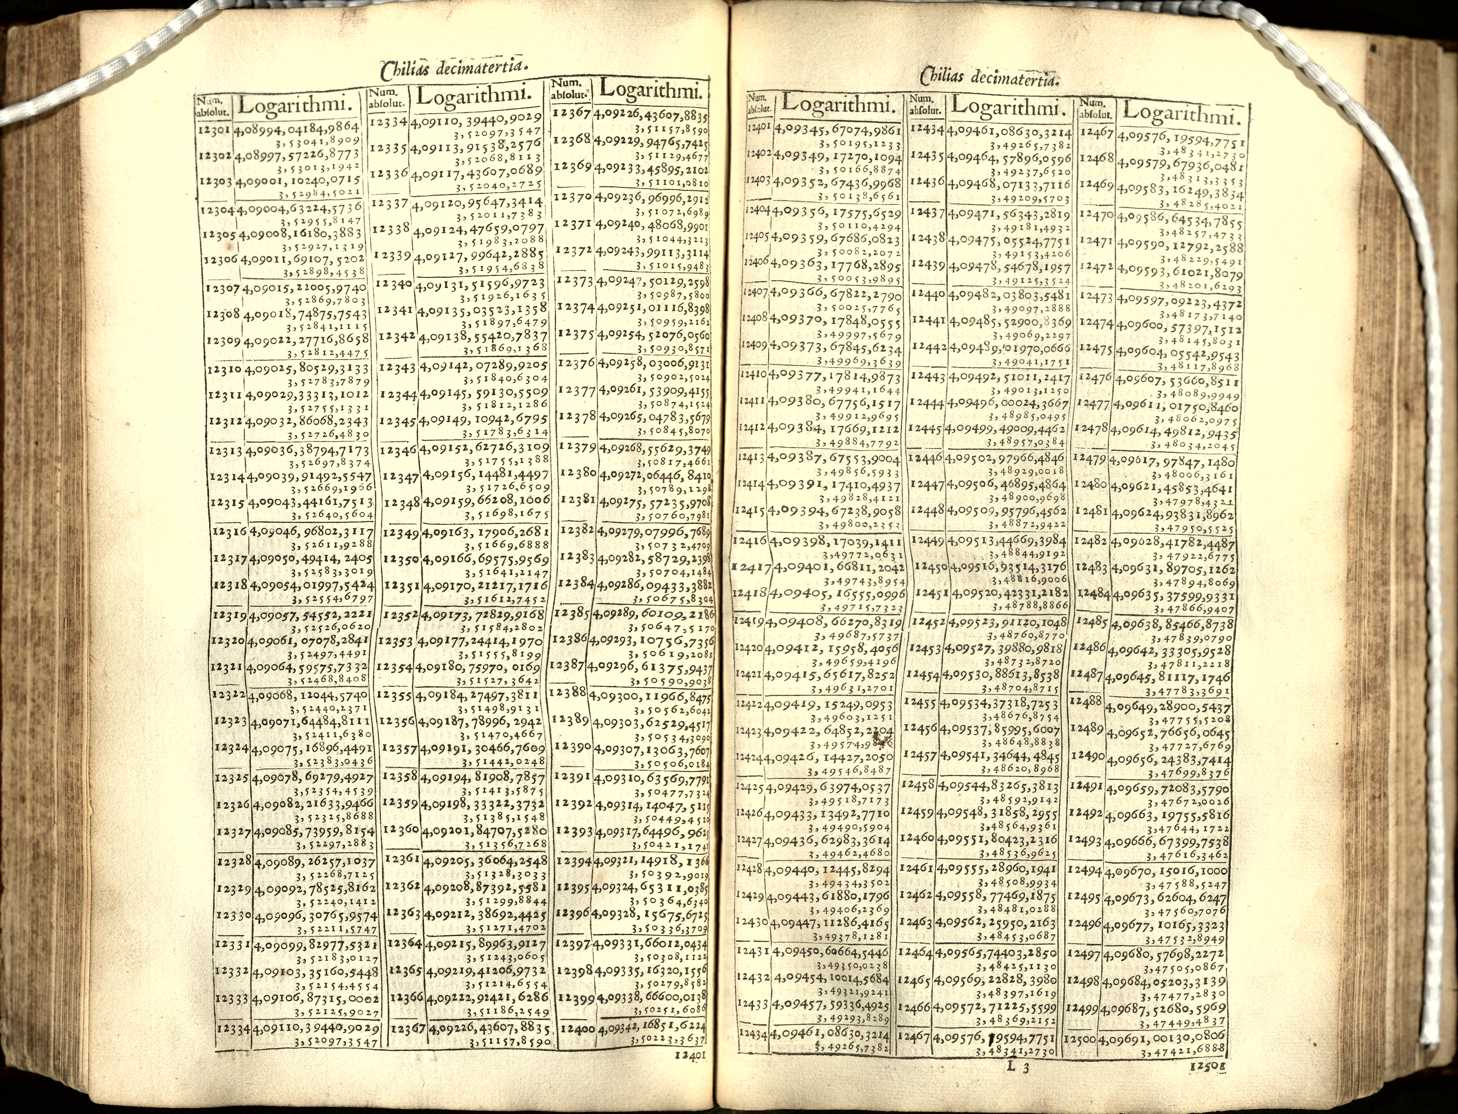 Chilias decimatertia.
Num. absolut. Logarithmi.
12301 4,08994,04184,9864
3,53041,8909
12302 4,08997,57226,8773
3,53013,1942
12303 4,09001,10240,0715
3,52984,5021
12304 4,09004,63224,5736
3,52955,8147
12305 4,09008,16180,3883
3,52927,1319
12306 4,09011,69107,5202
3,52898,4538
12307 4,09015,22005,9740
3,52869,7803
12308 4,09018,74875,7543
3,52841,1115
12309 4,09022,27716,8658
3,52812,4475
12310 4,09025,80529,3133
3,52783,7879
12311 4,09029,33313,1012
3,52755,1331
12312 4,09032,86068,2343
3,52726,4830
12313 4,09036,38794,7173
3,52697,8374
12314 4,09039,91492,5547
3,52669,1966
12315 4,09043,44161,7513
3,52640,5604
12316 4,09046,96802,3117
3,52611,9288
12317 4,09050,49414,2405
3,52583,3019
12318 4,09054,01997,5424
3,52554,6797
12319 4,09057,54552,2221
3,52526,0620
12320 4,09061,07078,2841
3,52497,4491
12321 4,09064,59575,7332
3,52468,8408
12322 4,09068,12044,5740
3,52440,2371
12323 4,09071,64484,8111
3,52411,6380
12324 4,09075,16896,4491
3,52383,0436
12325 4,09078,69279,4927
3,52354,4539
12326 4,09082,21633,9466
3,52325,8688
12327 4,09085,73959,8154
3,52297,2883
12328 4,09089,26257,1037
3,52268,7125
12329 4,09092,78525,8162
3,52240,1412
12330 4,09096,30765,9574
3,52211,5747
12331 4,09099,82977,5321
3,52183,0127
12332 4,09103,35160,5448
3,52154,4554
12333 4,09106,87315,0002
3,52125,9027
12334 4,09110,39440,9029
3,52097,3547
Num. absolut. Logarithmi.
12334 4,09110,39440,9029
3,52097,3547
12335 4,09113,91538,2576
3,52068,8113
12336 4,09117,43607,0689
3,52040,2725
12337 4,09120,95647,3414
3,52011,7383
12338 4,09124,47659,0797
3,51983,2088
12339 4,09127,99642,2885
3,51954,6838
12340 4,09131,51596,9723
3,51926,1635
12341 4,09135,03523,1358
3,51897,6479
12342 4,09138,55420,7837
3,51860,1368
12343 4,09142,07289,9205
3,51840,6304
12344 4,09145,59130,5509
3,51812,1286
12345 4,09149,10942,6795
3,51783,6314
12346 4,09152,62726,3109
3,51755,1388
12347 4,09156,14481,4497
3,51726,6509
12348 4,09159,66208,1006
3,51698,1675
12349 4,09163,17906,2681
3,51669,6888
12350 4,09166,69575,9569
3,51641,2147
12351 4,09170,21217,1716
3,51612,7452
12352 4,09173,72829,9168
3,51584,2802
12353 4,09177,24414,1970
3,51555,8199
12354 4,09180,75970,0169
3,51527,3642
12355 4,09184,27497,3811
3,51498,9131
12356 4,09187,78996,2942
3,51470,4667
12357 4,09191,30466,7609
3,51442,0248
12358 4,09194,81908,7857
3,51413,5875
12359 4,09198,33322,3732
3,51385,1548
12360 4,09201,84707,5280
3,51356,7268
12361 4,09205,36064,2548
3,51328,3033
12362 4,09208,87392,5581
3,51299,8844
12363 4,09212,38692,4425
3,51271,4702
12364 4,09215,89963,9127
3,51243,0605
12365 4,09219,41206,9732
3,51214,6554
12366 4,09222,92421,6286
3,51186,2549
12367 4,09226,43607,8835
3,51157,8590
Num. absolut. Logarithmi.
12367 4,09226,43607,8835
3,51157,8590
12368 4,09229,94765,7425
3,51129,4677
12369 4,09233,45895,2102
3,51101,0810
12370 4,09236,96996,2912
3,51072,6989
12371 4,09240,48068,9901
3,51044,3213
12372 4,09243,99113,3114
3,51015,9483
12373 4,09247,50129,2598
3,50987,5800
12374 4,09251,01116,8398
3,50959,2162
12375 4,09254,52076,0560
3,50930,8571
12376 4,09258,03006,9131
3,50902,5024
12377 4,09261,53909,4155
3,50874,1524
12378 4,09265,04783,5679
3,50845,8070
12379 4,09268,55629,3749
3,50817,4661
12380 4,09272,06446,8410
3,50789,1298
12381 4,09275,57235,9708
3,50760,7981
12382 4,09279,07996,7689
3,50732,4709
12383 4,09282,58729,2398
3,50704,1484
12384 4,09286,09433,3882
3,50675,8304
12385 4,09289,60109,2186
3,50647,5170
12386 4,09293,10756,7356
3,50619,2081
12387 4,09296,61375,9437
3,50590,9038
12388 4,09300,11966,8475
3,50562,6042
12389 4,09303,62529,4517
3,50534,3090
12390 4,09307,13063,7607
3,50506,0184
12391 4,09310,63569,7791
3,50477,7324
12392 4,09314,14047,5115
3,50449,4510
12393 4,09317,64496,9625
3,50421,1741
12394 4,09321,14918,1366
3,50392,9019
12395 4,09324,65311,0385
3,50364,6340
12396 4,09328,15675,6725
3,50336,3709
12397 4,09331,66012,0434
3,50308,1122
12398 4,09335,16320,1556
3,50279,8582
12399 4,09338,66600,0138
3,50251,6086
12400 4,09342,16851,6224
3,50223,3637
12401
Chilias decimatertia.
Num. absolut. Logarithmi.
12401 4,09345,67074,9861
3,50195,1233
12402 4,09349,17270,1094
3,50166,8874
12403 4,09352,67436,9968
3,50138,6561
12404 4,09356,17575,6529
3,50110,4294
12405 4,09359,67686,0823
3,50082,2072
12406 4,09363,17768,2895
3,50053,9895
12407 4,09366,67822,2790
3,50025,7765
12408 4,09370,17848,0555
3,49997,5679
12409 4,09373,67845,6234
3,49969,3639
12410 4,09377,17814,9873
3,49941,1644
12411 4,09380,67756,1517
3,49912,9695
12412 4,09384,17669,1212
3,49884,7792
12413 4,09387,67553,9004
3,49856,5933
12414 4,09391,17410,4937
3,49828,4121
12415 4,09394,67238,9058
3,49800,2353
12416 4,09398,17039,1411
3,49772,0631
12417 4,09401,66811,2042
3,49743,8954
12418 4,09405,16555,0996
3,49715,7323
12419 4,09408,66270,8319
3,49687,5737
12420 4,09412,15958,4056
3,49659,4196
12421 4,09415,65617,8252
3,49631,2701
12422 4,09419,15249,0953
3,49603,1251
12423 4,09422,64852,2204
3,49574,9
12424 4,09426,14427,2050
3,49546,8487
12425 4,09429,63974,0537
3,49518,7173
12426 4,09433,13492,7710
3,49490,5904
12427 4,09436,62983,3614
3,49462,4680
12428 4,09440,12445,8294
3,49434,3502
12429 4,09443,61880,1796
3,49406,2369
12430 4,09447,11286,4165
3,49378,1281
12431 4,09450,60664,5446
3,49350,0238
12432 4,09454,10014,5684
3,49321,9241
12433 4,09457,59336,4925
3,49293,8289
12434 4,09461,08630,3214
3,49265,7382
Num. absolut. Logarithmi.
12434 4,09461,08630,3214
3,49265,7382
12435 4,09464,57896,0596
3,49237,6520
12436 4,09468,07133,7116
3,49209,5703
12437 4,09471,56343,2819
3,49181,4932
12438 4,09475,05524,7751
3,49153,4206
12439 4,09478,54678,1957
3,49125,3524
12440 4,09482,03803,5481
3,49097,2888
12441 4,09485,52900,8369
3,49069,2297
12442 4,09489,01970,0666
3,49041,1751
12443 4,09492,51011,2417
3,49013,1250
12444 4,09496,00024,3667
3,48985,0495
12445 4,09499,49009,4462
3,48957,0384
12446 4,09502,97966,4846
3,48929,0018
12447 4,09506,46895,4864
3,48900,9698
12448 4,09509,95796,4562
3,48872,9422
12449 4,09513,44669,3984
3,48844,9192
12450 4,09516,93514,3176
3,48816,9006
12451 4,09520,42331,2182
3,48788,8866
12452 4,09523,91120,1048
3,48760,8770
12453 4,09527,39880,9818
3,48732,8720
12454 4,09530,88613,8538
3,48704,8715
12455 4,09534,37318,7253
3,48676,8754
12456 4,09537,85995,6007
3,48648,8838
12457 4,09541,34644,4845
3,48620,8968
12458 4,09544,83265,3813
3,48592,9142
12459 4,09548,31858,2955
3,48564,9361
12460 4,09551,80423,2316
3,48536,9625
12461 4,09555,28960,1941
3,48508,9934
12462 4,09558,77469,1875
3,48481,0288
12463 4,09562,25950,2163
3,48453,0687
12464 4,09565,74403,2850
3,48425,1130
12465 4,09569,22828,3980
3,48397,1619
12466 4,09572,71225,5599
3,48369,2152
12467 4,09576,19594,7751
3,48341,2730
L 3
Num. absolut. Logarithmi.
12467 4,09576,19594,7751
3,48341,2730
12468 4,09579,67936,0481
3,48313,3353
12469 4,09583,16249,3834
3,48285,4021
12470 4,09586,64534,7855
3,48257,4733
12471 4,09590,12792,2588
3,48229,5491
12472 4,09593,61021,8079
3,48201,6293
12473 4,09597,09223,4372
3,48173,7140
12474 4,09600,57397,1512
3,48145,8031
12475 4,09604,05542,9543
3,48117,8968
12476 4,09607,53660,8511
3,48089,9949
12477 4,09611,01750,8460
3,48062,0975
12478 4,09614,49812,9435
3,48034,2045
12479 4,09617,97847,1480
3,48006,3161
12480 4,09621,45853,4641
3,47978,4321
12481 4,09624,93831,8962
3,47950,5525
12482 4,09628,41782,4487
3,47922,6775
12483 4,09631,89705,1262
3,47894,8069
12484 4,09635,37599,9331
3,47866,9407
12485 4,09638,85466,8738
3,47839,0790
12486 4,09642,33305,9528
3,47811,2218
12487 4,09645,81117,1746
3,47783,3691
12488 4,09649,28900,5437
3,47755,5208
12489 4,09652,76656,0645
3,47727,6769
12490 4,09656,24383,7414
3,47699,8376
12491 4,09659,72083,5790
3,47672,0026
12492 4,09663,19755,5816
3,47644,1722
12493 4,09666,67399,7538
3,47616,3462
12494 4,09670,15016,1000
3,47588,5247
12495 4,09673,62604,6247
3,47560,7076
12496 4,09677,10165,3323
3,47532,8949
12497 4,09680,57698,2272
3,47505,0867
12498 4,09684,05203,3139
3,47477,2830
12499 4,09687,52680,5969
3,47449,4837
12500 4,09691,00130,0806
3,47421,6888
12501